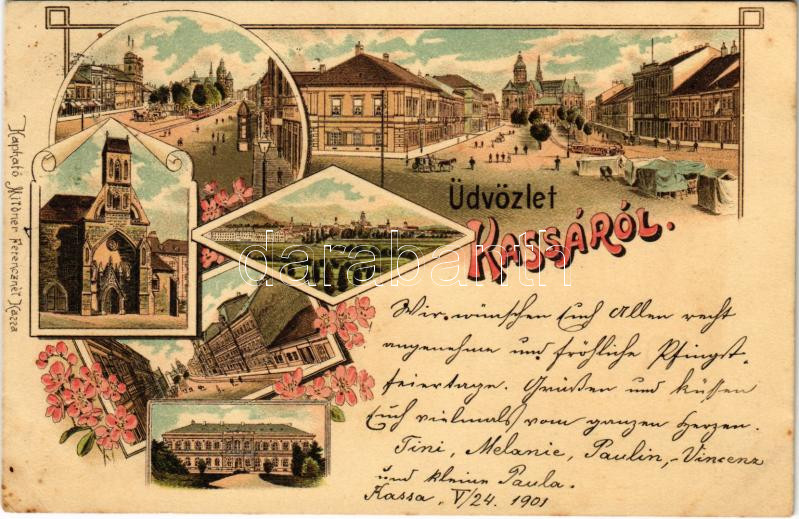 Üdvözlet
KASSÁRÓL.
Kapható Mildner Ferencznél Kassa
darabanth
Wir wünschen Euch Allen recht
angenehme und fröhliche Pfingst-
feiertage. Grüßen und küssen
Euch vielmals vom ganzen Herzen.
Tini, Melanie, Paulin, Vincenz
und kleine Paula.
Kassa, V/24. 1901